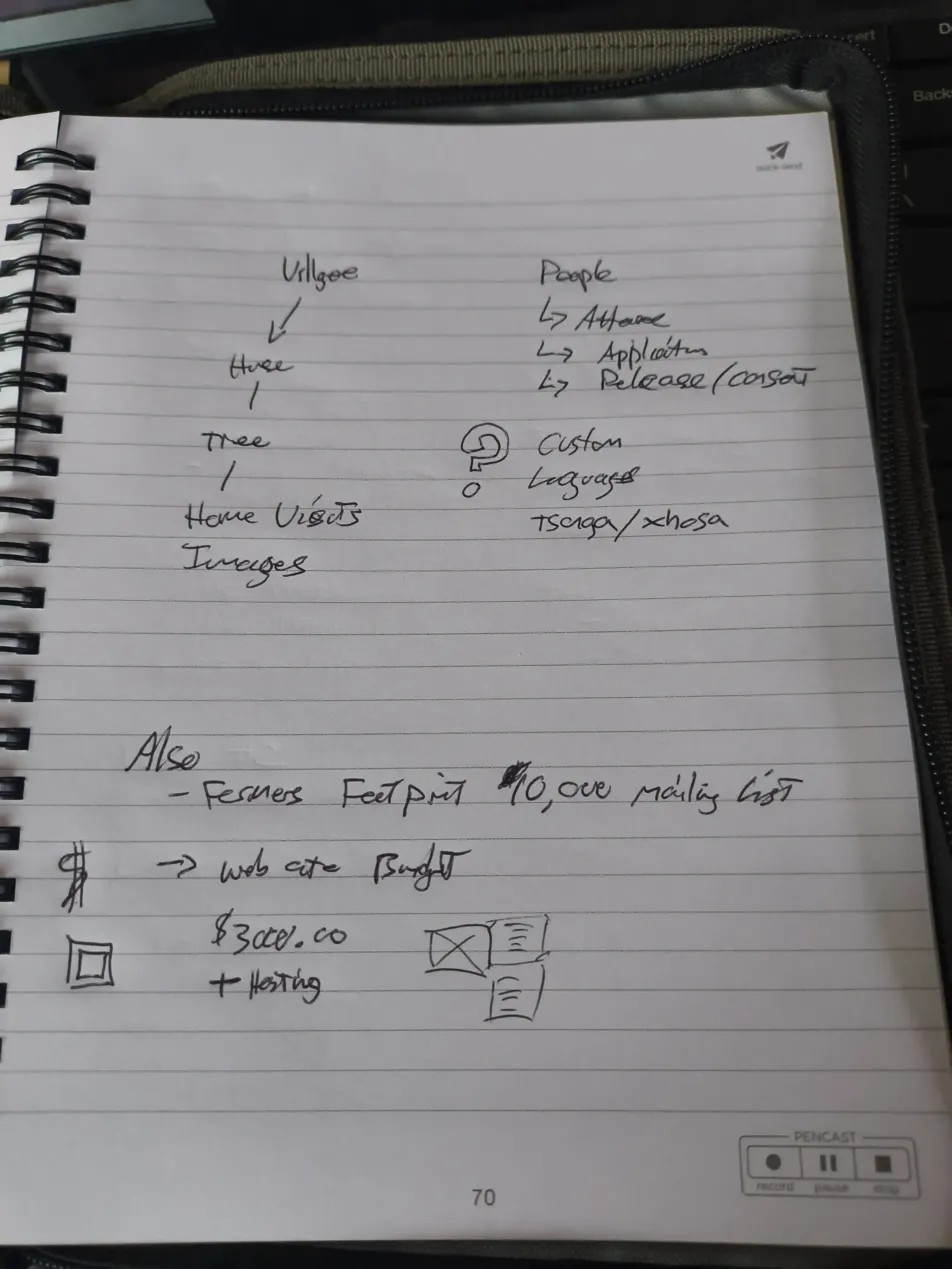 Village
House
Tree
Home Visits
Images
People
↳ Athome
↳ Application
↳ Release/consent
? Custom
Languages
Tsonga/xhosa
Also
- Farmers Footprint 10,000 mailing List
$ → web site Budget
$3000.00
+ Hosting
PENCAST
record pause stop
70
quick send
Back